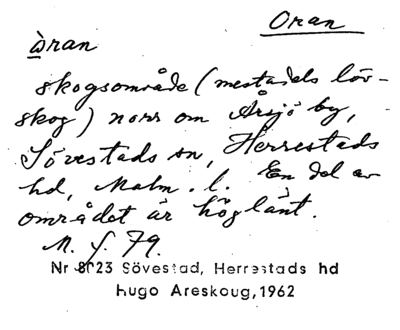 Oran
òran
skogsområde (mestadels löv-
skog) norr om Årsjö by,
Sövestads sn, Herrestads
hd, Malm. l. En del av
området är höglänt.
M. f. 79.
Nr 8023 Sövestad, Herrestads hd
Hugo Areskoug, 1962